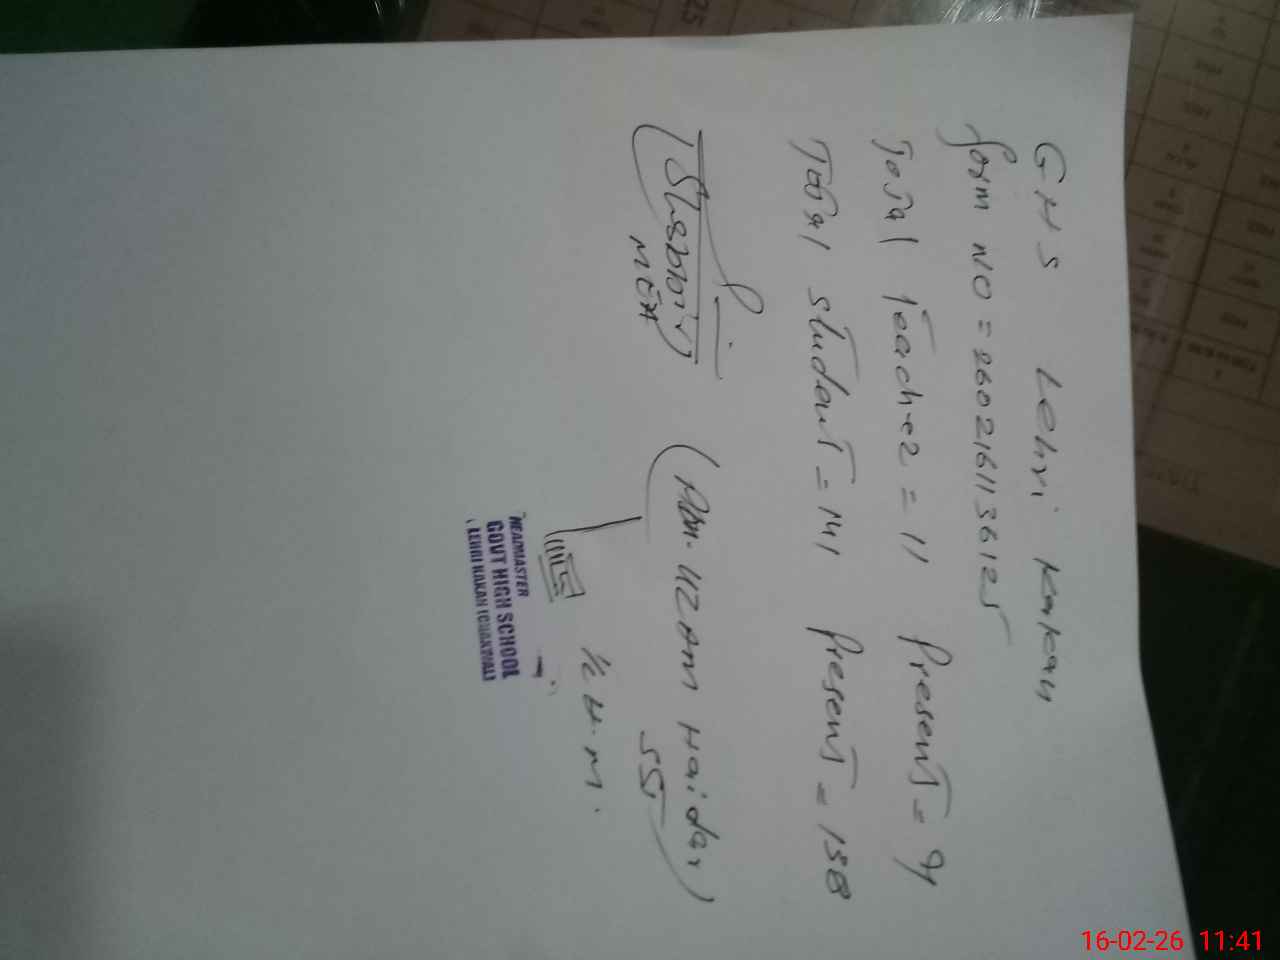 GHS Lehri Kakan
form NO = 2602161136125
Total Teacher = 11 Present = 9
Total student = 141 Present = 138
(Shabbir)
MEA
Haidar)
SST
H.M.
HEADMASTER
GOVT HIGH SCHOOL
LEHRI KAKAN (CHAKWAL)
16-02-26 11:41